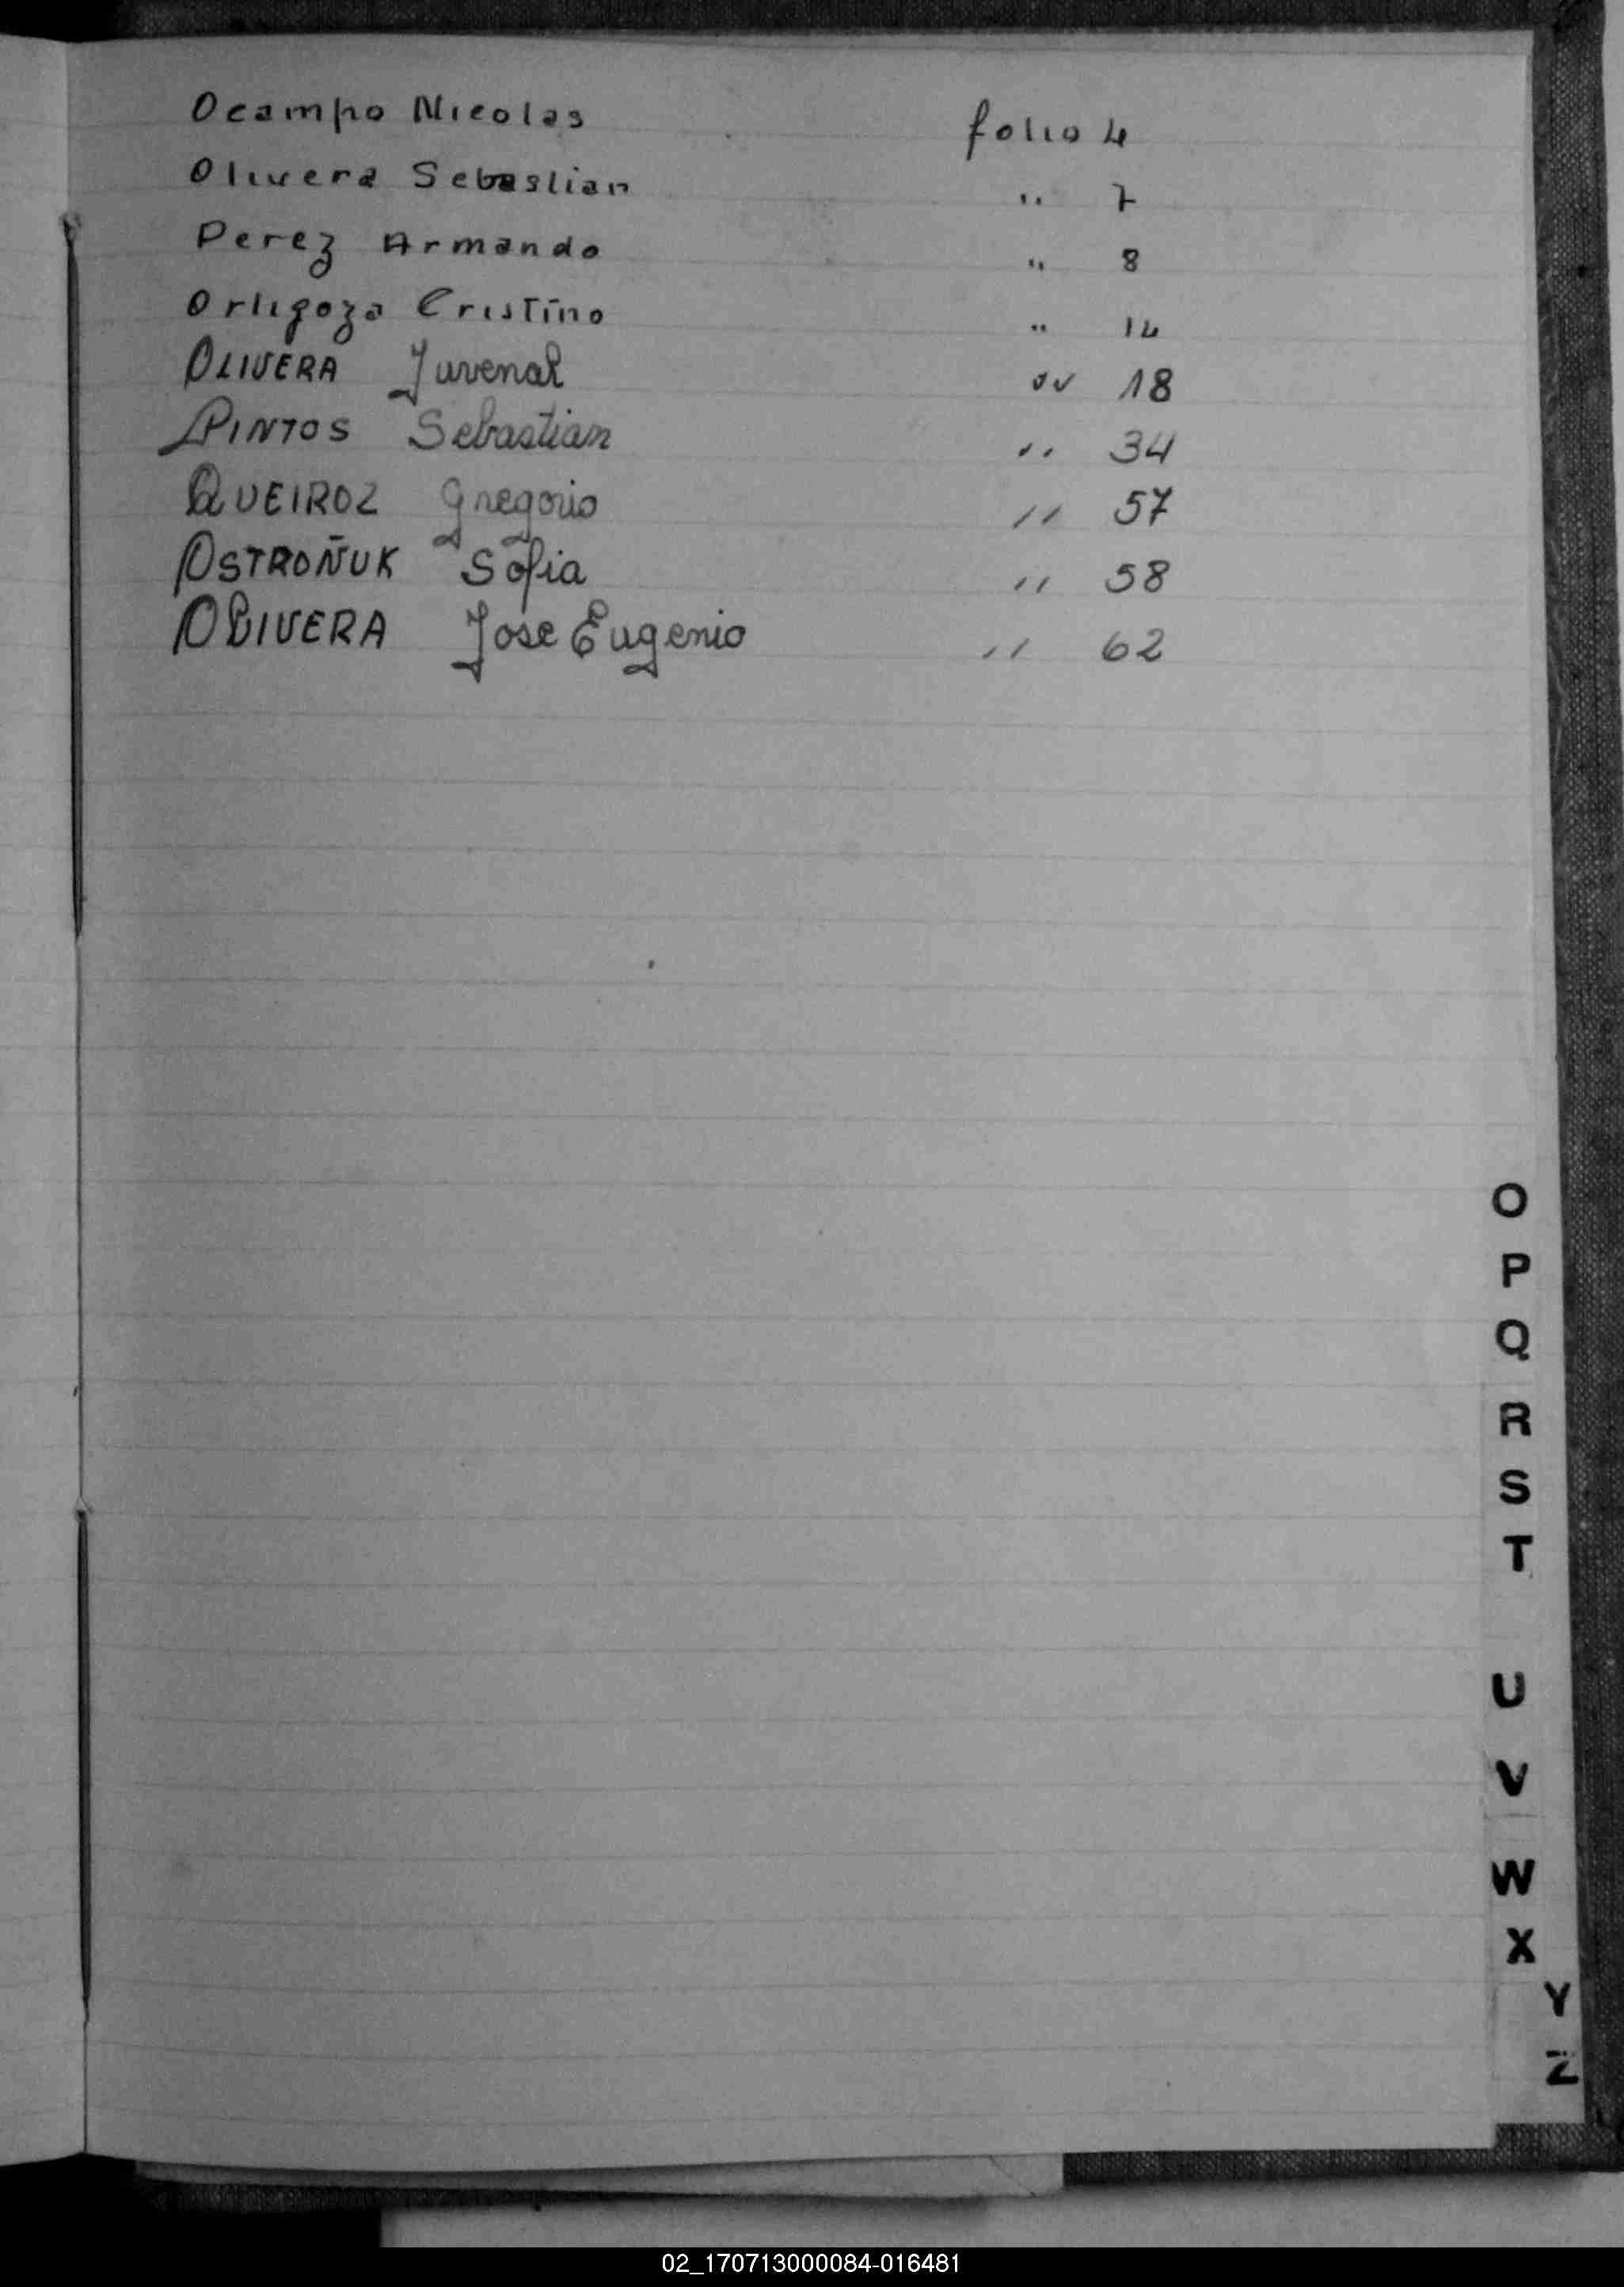 Ocampo Nicolas folio 4
Olivera Sebastian " 7
Perez Armando " 8
Ortigoza Cristino " 14
OLIVERA Juvenal " 18
PINTOS Sebastian " 34
QUEIROZ Gregorio " 57
OSTROÑUK Sofia " 58
OLIVERA Jose Eugenio " 62
O
P
Q
R
S
T
U
V
W
X
Y
Z
02_170713000084-016481